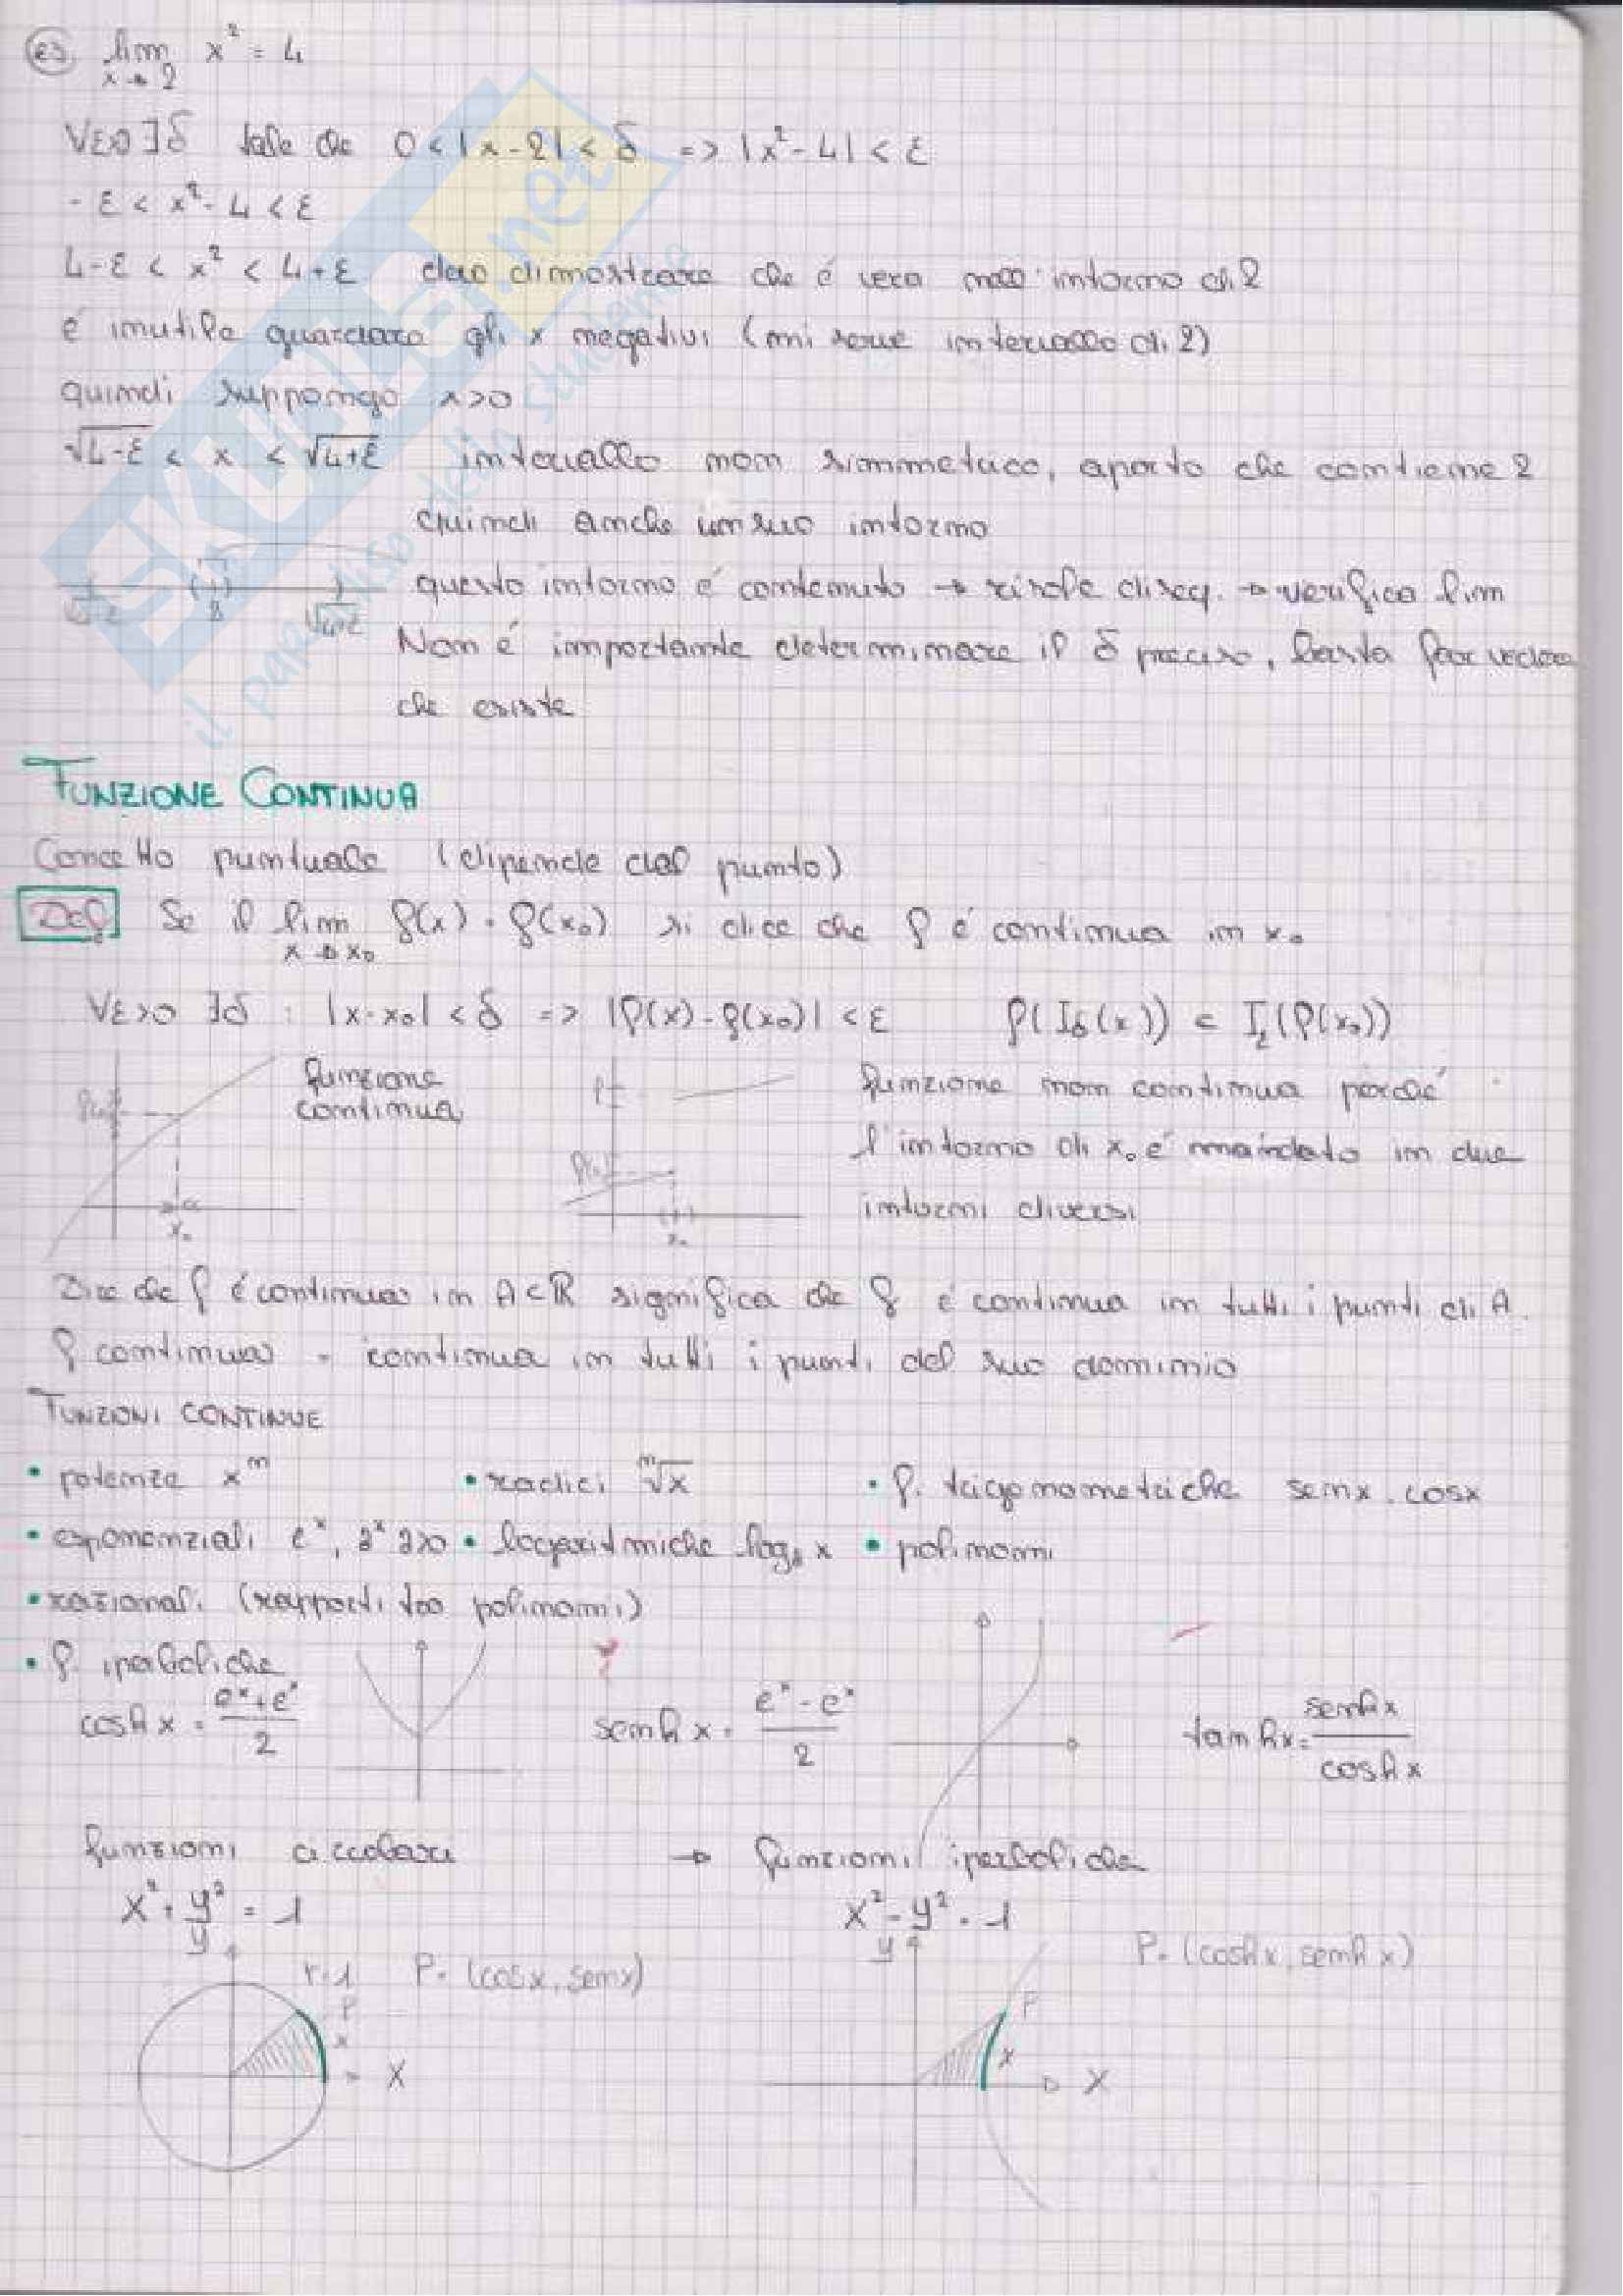 es. lim x² = 4
x→2
∀ε>0 ∃δ tale che 0 < |x-2| < δ => |x²-4| < ε
-ε < x²-4 < ε
4-ε < x² < 4+ε devo dimostrare che é vera nell'intorno di 2
é inutile guardare gli x negativi (mi serve intervallo di 2)
quindi suppongo x>0
√4-ε < x < √4+ε intervallo non simmetrico, aperto che contiene 2
quindi anche un suo intorno
questo intorno é contenuto → risolve diseq. → verifica lim
√4-ε 2 √4+ε
Non é importante determinare il δ preciso, basta far vedere
che esiste
SKUOLA.net
il paradiso dello studente
FUNZIONE CONTINUA
Concetto puntuale (dipende dal punto)
Def Se il lim f(x) = f(x₀) si dice che f é continua in x₀
x→x₀
∀ε>0 ∃δ : |x-x₀| < δ => |f(x)-f(x₀)| < ε f(Iδ(x)) ⊂ Iε(f(x₀))
funzione
continua
x₀
x₀
funzione non continua perché
l'intorno di x₀ é mandato in due
intorni diversi
Dire che f é continua in A⊂ℝ significa che f é continua in tutti i punti di A.
f continua = continua in tutti i punti del suo dominio
FUNZIONI CONTINUE
• potenze xⁿ • radici ⁿ√x • f. trigonometriche senx, cosx
• esponenziali eˣ, aˣ a>0 • logaritmiche logₐ x • polinomi
• razionali (rapporti tra polinomi)
• f. iperboliche
cosh x = eˣ+eˣ / 2 senh x = eˣ-eˣ / 2 tanh x = senh x / cosh x
funzioni circolari → funzioni iperboliche
x²+y² = 1 x²-y² = 1
y r=1 P=(cosx, senx) y P=(cosh x, senh x)
P P
x x
X X